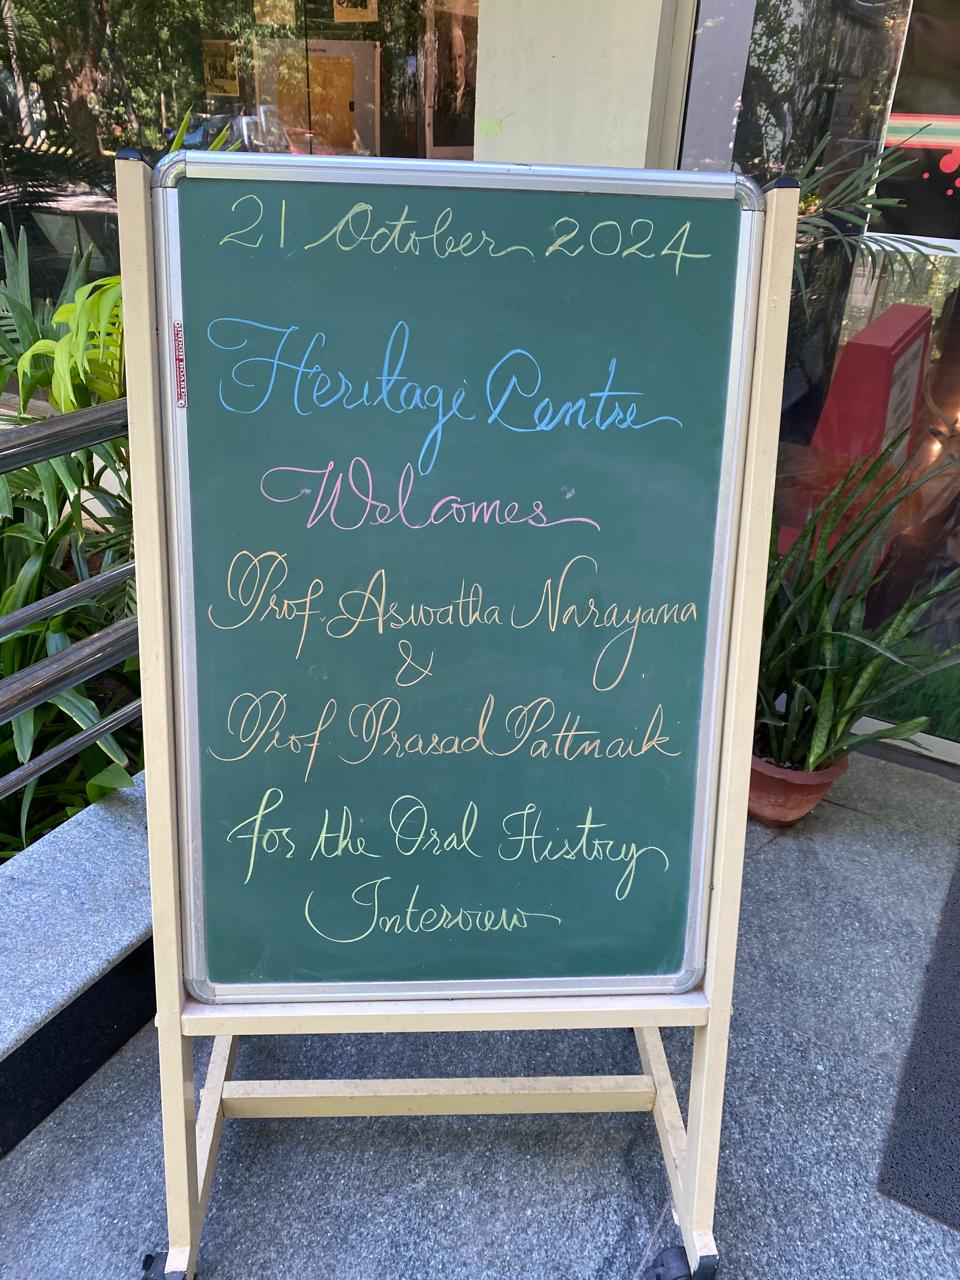 21 October 2024
Heritage Centre
Welcomes
Prof. Aswatha Narayana
&
Prof Prasad Pattnaik
for the Oral History
Interview